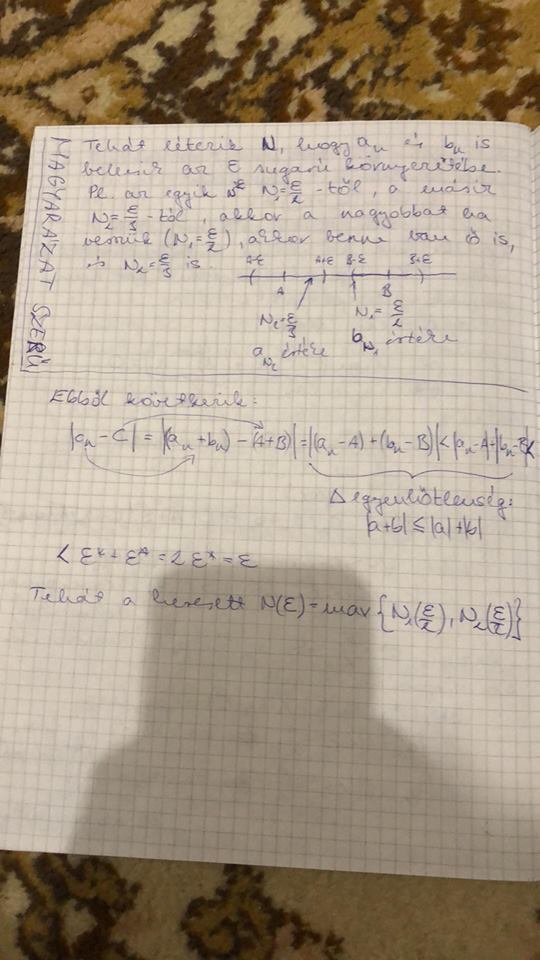 MAGYARÁZAT SZERŰ
Tehát létezik N, hogy aₙ és bₙ is
beleér az ε sugarú környezetébe.
Pl. az egyik N₁=ε/2-től, a másik
N₂=ε/3-tól, akkor a nagyobbat ha
vesszük (N₁=ε/2), akkor benne van ő is,
és N₂=ε/3 is.
A-ε A+ε B-ε B+ε
A B
N₂=ε/3 N₁=ε/2
a_N₂ értéke b_N₁ értéke
Ebből következik:
|cₙ-C| = |(aₙ+bₙ)-(A+B)| = |(aₙ-A)+(bₙ-B)| < |aₙ-A|+|bₙ-B| <
Δ egyenlőtlenség:
|a+b| ≤ |a|+|b|
< ε*+ε* = 2ε* = ε
Tehát a keresett N(ε) = max{N₁(ε/2), N₂(ε/2)}